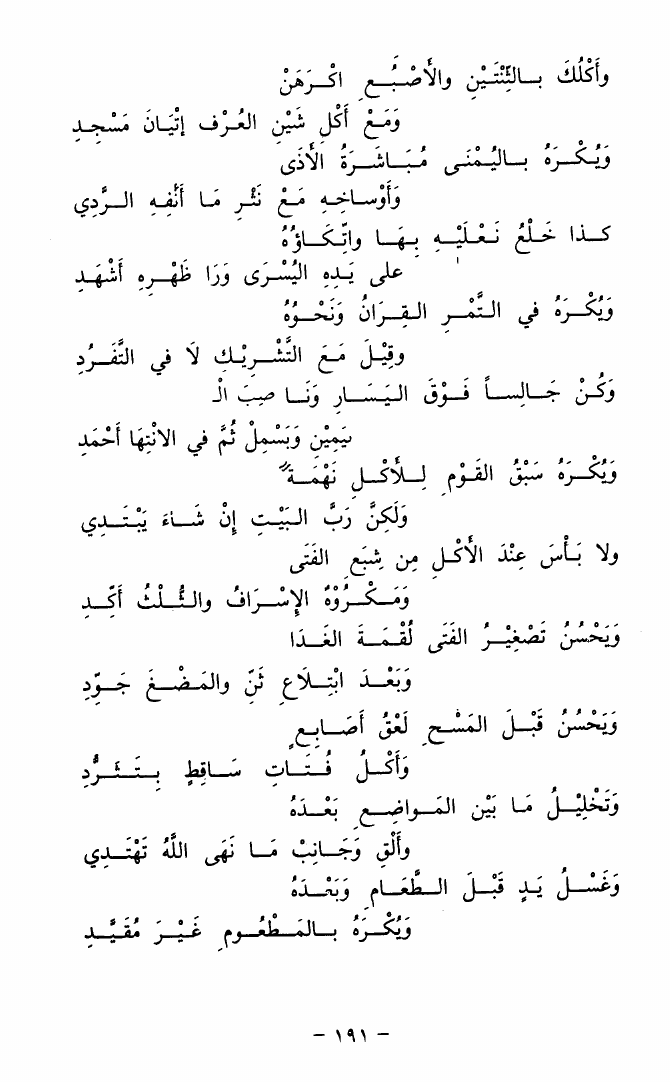 وأَكْلُكَ بـالثِّنْتَـيْنِ والأَصْبُـعِ اكْـرَهَنْ
وَمَـعْ أَكْلِ شَيْنِ العُـرْفِ إتْيَـانَ مَسْجِـدِ
وَيُـكْـرَهُ بـاليُمْنَى مُبَـاشَـرَةُ الأَذَى
وَأَوْسـاخِـهِ مَـعْ نَثْـرِ مَا أَنْفِـهِ الـرَّدِي
كـذا خَلْعُ نَـعْـلَيْـهِ بِـهَـا واتِّـكَـاؤُهُ
على يَـدِهِ اليُسْـرَى وَرَا ظَهْـرِهِ أَشْهَـدِ
وَيُكْـرَهُ في التَّمْـرِ القِـرَانُ وَنَحْـوُهُ
وقِيْـلَ مَـعَ التَّشْـرِيْـكِ لَا في التَّفَـرُّدِ
وَكُـنْ جَـالِسـاً فَـوْقَ اليَـسَـارِ وَنَـاصِبَ الْـ
يَمِيْنِ وَبَسْمِلْ ثُمَّ في الانْتِهَا أَحْمَدِ
وَيُكْـرَهُ سَبْقُ القَـوْمِ لِـلأَكْـلِ نَهْمَـةً
وَلَكِنَّ رَبَّ البَيْتِ إنْ شَـاءَ يَبْتَـدِي
ولا بَـأْسَ عِنْدَ الأَكْـلِ مِن شِبَعِ الفَتَى
وَمَـكْـرُوْهٌ الإسْـرَافُ والثُّـلْثُ أَكِّـدِ
وَيَحْسُنُ تَصْغِيْـرُ الفَتَى لُقْمَـةَ الغَـذَا
وَبَعْـدَ ابْتِـلَاعٍ ثَنِّ والمَضْـغَ جَـوِّدِ
وَيَحْسُنُ قَبْـلَ المَسْـحِ لَعْقُ أَصَـابِعٍ
وَأَكْـلُ فُـتَـاتٍ سَـاقِطٍ بِـتَـثَـرُّدِ
وَتَخْلِيْـلُ مَا بَيْنَ المَـواضِـعِ بَعْـدَهُ
وأَلْقِ وَجَـانِبْ مَـا نَهَى اللَّهُ تَهْتَـدِي
وَغَسْـلُ يَـدٍ قَبْـلَ الـطَّعَـامِ وَبَعْـدَهُ
وَيُكْـرَهُ بـالمَـطْعُـومِ غَيْـرَ مُقَيَّـدِ
- ١٩١ -